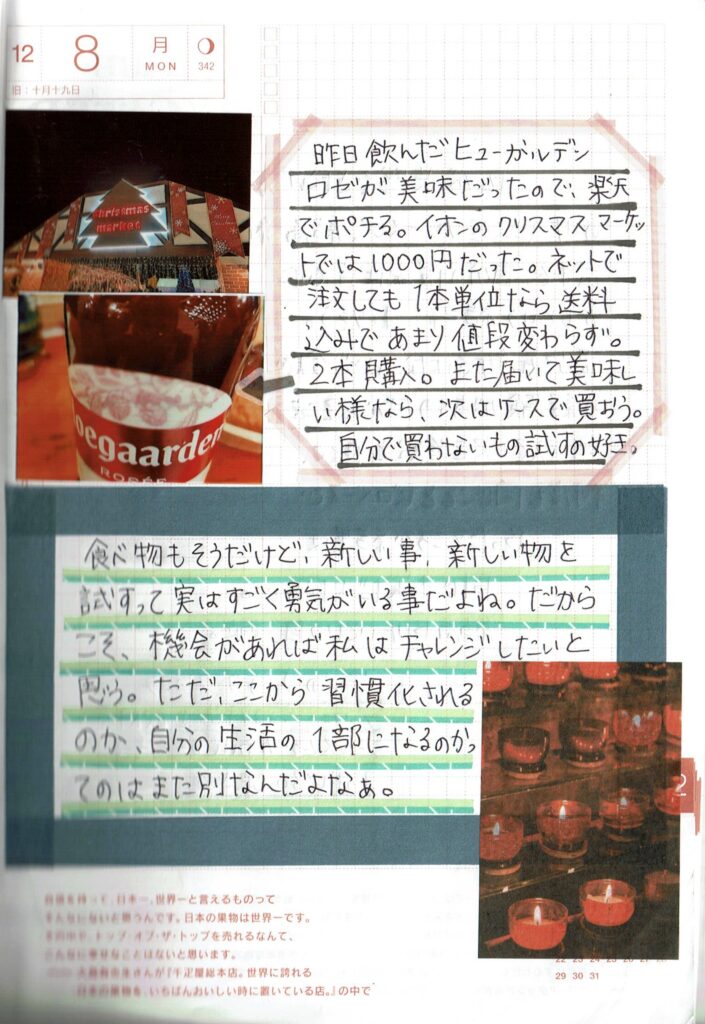 12 8 月 MON 342
旧:十月十九日
christmas
market
昨日飲んだヒューガルデン
ロゼが美味だったので、楽天
でポチる。イオンのクリスマスマーケッ
トでは1000円だった。ネットで
注文しても1本単位なら送料
込みであまり値段変わらず。
2本購入。また届いて美味し
い様なら、次はケースで買おう。
自分で買わないもの試すの好き。
oegaarden
ROSÉE
食べ物もそうだけど、新しい事、新しい物を
試すって実はすごく勇気がいる事だよね。だから
こそ、機会があれば私はチャレンジしたいと
思う。ただ、ここから習慣化される
のか、自分の生活の1部になるのかっ
てのはまた別なんだよなぁ。
2
自信を持って、日本一、世界一と言えるものって
そんなにないと思うんです。日本の果物は世界一です。
その中で、トップ・オブ・ザ・トップを売れるなんて、
こんなに幸せなことはないと思います。
さんが『千疋屋総本店。世界に誇れる
日本の果物を、いちばんおいしい時に置いている店。』の中で
22 23 24 25 26 27 28
29 30 31